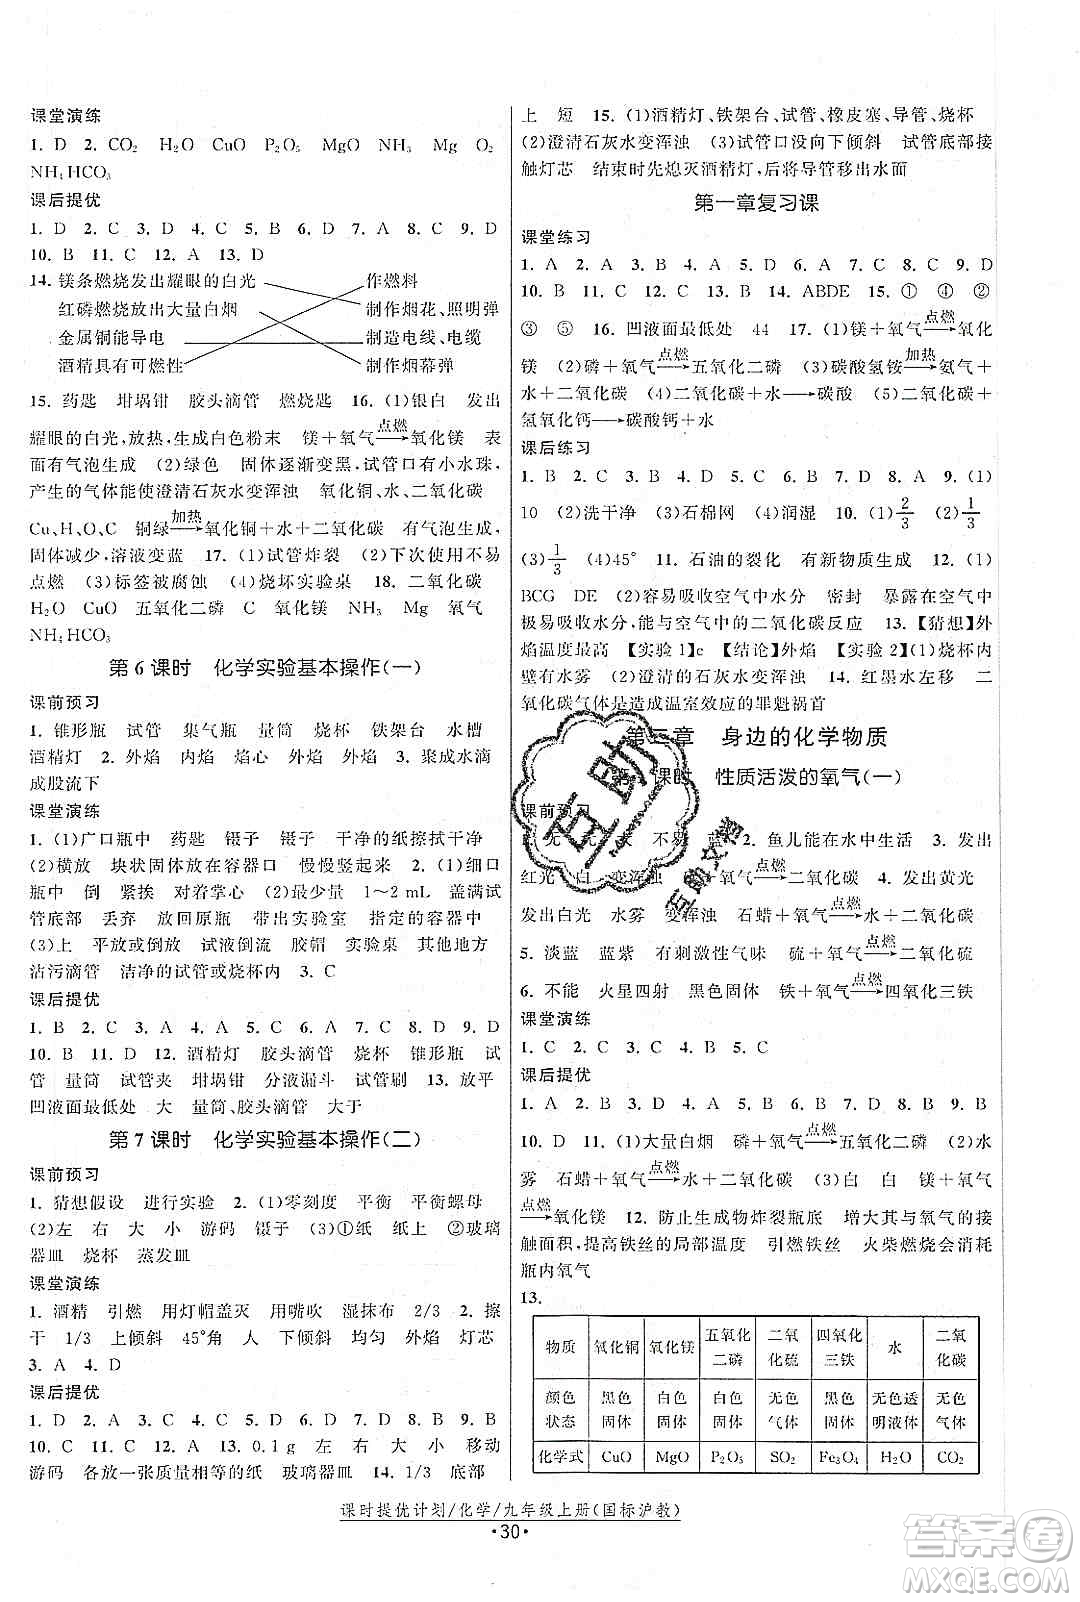 课堂演练
1. D  2. CO₂  H₂O  CuO  P₂O₅  MgO  Mg  O₂
NH₄HCO₃
课后提优
1. D  2. C  3. D  4. C  5. B  6. D  7. D  8. C  9. C
10. B  11. C  12. A  13. D
14. 镁条燃烧发出耀眼的白光  作燃料
红磷燃烧放出大量白烟  制作烟花、照明弹
金属铜能导电  制造电线、电缆
酒精具有可燃性  制作烟幕弹
15. 药匙  坩埚钳  胶头滴管  燃烧匙  16. (1)银白  发出
耀眼的白光,放热,生成白色粉末  镁+氧气 点燃→ 氧化镁  表
面有气泡生成  (2)绿色  固体逐渐变黑,试管口有小水珠,
产生的气体能使澄清石灰水变浑浊  氧化铜、水、二氧化碳
Cu、H、O、C  铜绿 加热→ 氧化铜+水+二氧化碳  有气泡生成,
固体减少,溶液变蓝  17. (1)试管炸裂  (2)下次使用不易
点燃  (3)标签被腐蚀  (4)烧坏实验桌  18. 二氧化碳
H₂O  CuO  五氧化二磷  C  氧化镁  NH₃  Mg  氧气
NH₄HCO₃
第 6 课时  化学实验基本操作(一)
课前预习
1. 锥形瓶  试管  集气瓶  量筒  烧杯  铁架台  水槽
酒精灯  2. 外焰  内焰  焰心  外焰  外焰  3. 聚成水滴
成股流下
课堂演练
1. (1)广口瓶中  药匙  镊子  镊子  干净的纸擦拭干净
(2)横放  块状固体放在容器口  慢慢竖起来  2. (1)细口
瓶中  倒  紧挨  对着手心  (2)最少量  1~2 mL  盖满试
管底部  丢弃  放回原瓶  带出实验室  指定的容器
(3)上  平放或倒放  试液倒流  胶帽  实验桌  其他地方
沾污滴管  洁净的试管或烧杯内  3. C
课后提优
1. B  2. C  3. A  4. A  5. C  6. C  7. B  8. D  9. D
10. B  11. D  12. 酒精灯  胶头滴管  烧杯  锥形瓶  试
管  量筒  试管夹  坩埚钳  分液漏斗  试管刷  13. 放平
凹液面最低处  大  量筒、胶头滴管  大于
第 7 课时  化学实验基本操作(二)
课前预习
1. 猜想假设  进行实验  2. (1)零刻度  平衡  平衡螺母
(2)左  右  大  小  游码  镊子  (3)①纸  纸上  ②玻璃
器皿  烧杯  蒸发皿
课堂演练
1. 酒精  引燃  用灯帽盖灭  用嘴吹  湿抹布  2/3  2. 擦
干  1/3  上倾斜  45°角  人  下倾斜  均匀  外焰  灯芯
3. A  4. D
课后提优
1. D  2. A  3. B  4. C  5. C  6. D  7. B  8. B  9. B
10. C  11. C  12. A  13. 0.1 g  左  右  大  小  移动
游码  各放一张质量相等的纸  玻璃器皿  14. 1/3  底部
上  短  15. (1)酒精灯、铁架台、试管、橡皮塞、导管、烧杯
(2)澄清石灰水变浑浊  (3)试管口没向下倾斜  试管底部接
触灯芯  结束时先熄灭酒精灯,后将导管移出水面
第一章复习课
课堂练习
1. A  2. A  3. A  4. B  5. D  6. A  7. C  8. C  9. D
10. B  11. D  12. B  13. A  14. ABDE  15. ①  ④  ②
③  ⑤  16. 凹液面最低处  44  17. (1)镁+氧气 点燃→ 氧化
镁  (2)磷+氧气 点燃→ 五氧化二磷  (3)碳酸氢铵 加热→ 氨气+
水+二氧化碳  (4)二氧化碳+水→碳酸  (5)二氧化碳+
氢氧化钙→碳酸钙+水
课后练习
1. B  2. C  3. D  4. C  5. B  6. D  7. C  8. A  9. (1)
10  (2)洗干净  (3)石棉网  (4)润湿  10. (1) 2/3  (2) 1/3
(3) 1/3  (4)45°  11. 石油的裂化  有新物质生成  12. (1)
BCG  DE  (2)容易吸收空气中水分  密封  暴露在空气中
极易吸水,能与空气中的二氧化碳反应  13. 【猜想】外
焰温度最高  【实验 1】c  【结论】外焰  【实验 2】(1)烧杯内
壁有水雾  (2)澄清的石灰水变浑浊  14. 红墨水左移  二
氧化碳气体是造成温室效应的罪魁祸首
第二章  身边的化学物质
课时  性质活泼的氧气(一)
课前预习
无  无  蓝  2. 鱼儿能在水中生活  3. 发出
红光  白  变浑浊  氧气 点燃→ 二氧化碳  4. 发出黄光
发出白光  水雾  变浑浊  石蜡+氧气 点燃→ 水+二氧化碳
5. 淡蓝  蓝紫  有刺激性气味  硫+氧气 点燃→ 二氧化硫
6. 不能  火星四射  黑色固体  铁+氧气 点燃→ 四氧化三铁
课堂演练
1. C  2. C  3. D  4. B  5. C
课后提优
1. A  2. D  3. D  4. A  5. A  6. B  7. B  8. D  9. C
10. D  11. (1)大量白烟  磷+氧气 点燃→ 五氧化二磷  (2)水
雾  石蜡+氧气 点燃→ 水+二氧化碳  (3)白  白  镁+氧气
点燃→ 氧化镁  12. 防止生成物炸裂瓶底  增大其与氧气的接
触面积,提高铁丝的局部温度  引燃铁丝  火柴燃烧会消耗
瓶内氧气
13.
物质  氧化铜  氧化镁  五氧化二磷  二氧化硫  四氧化三铁  水  二氧化碳
颜色状态  黑色固体  白色固体  白色固体  无色气体  黑色固体  无色透明液体  无色气体
化学式  CuO  MgO  P₂O₅  SO₂  Fe₃O₄  H₂O  CO₂
课时提优计划/化学/九年级上册(国标沪教)
·30·
互助
互助文酒
答案圈
MXQE.COM